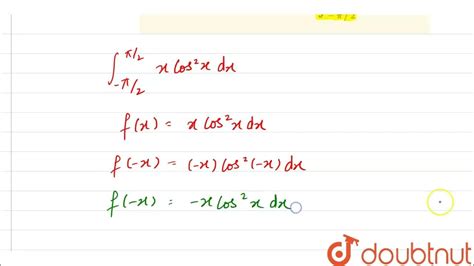 ∫_{-π/2}^{π/2} x cos²x dx
f(x) = x cos²x dx
f(-x) = (-x) cos²(-x) dx
f(-x) = -x cos²x dx
doubtnut